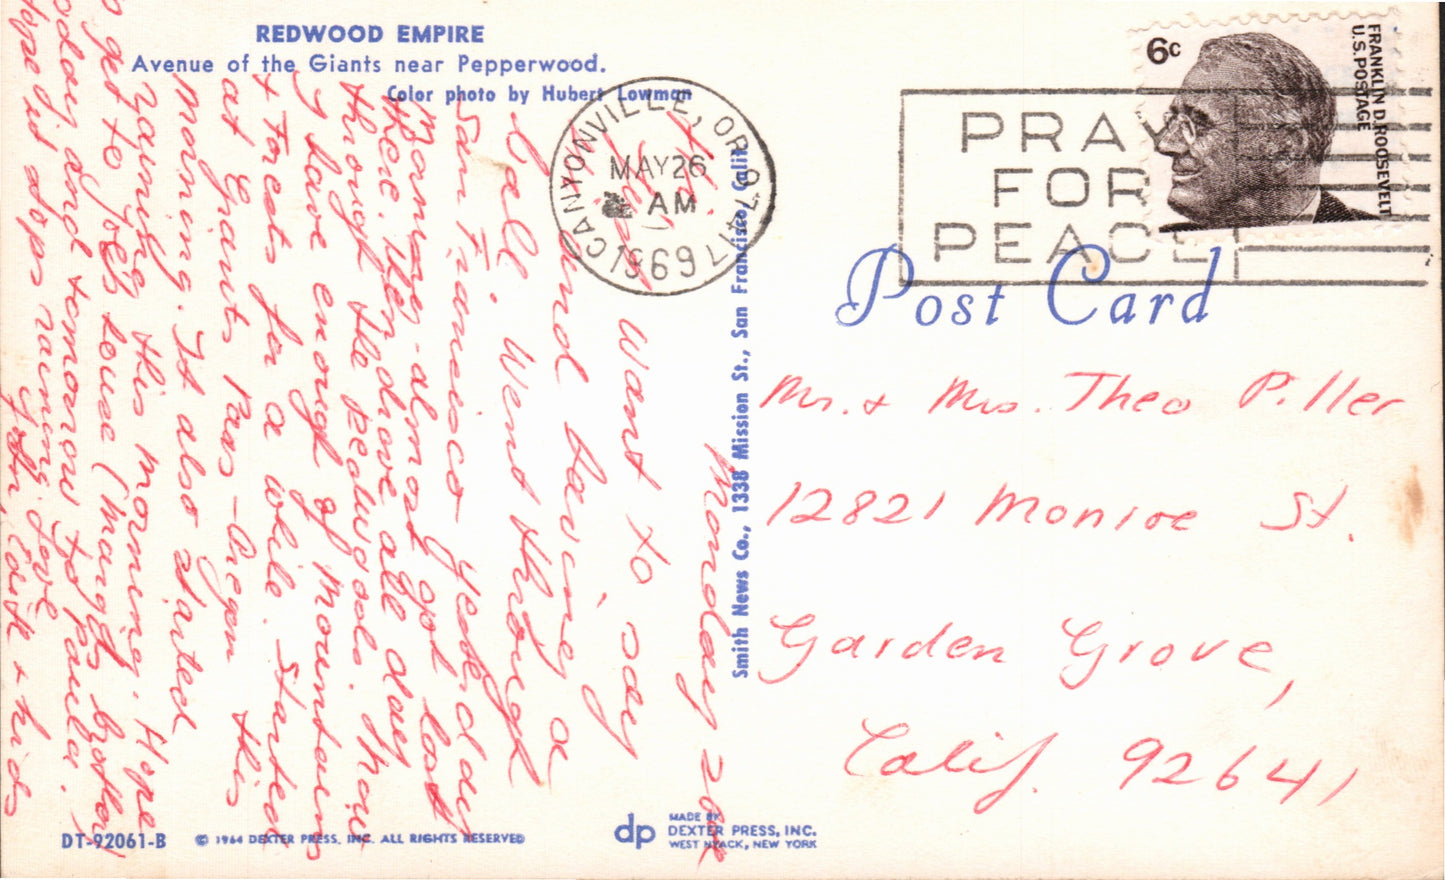 REDWOOD EMPIRE
Avenue of the Giants near Pepperwood.
Color photo by Hubert Lowman
CANYONVILLE, OR 97417
MAY 26
AM
1969
PRAY
FOR
PEACE
6c
FRANKLIN D. ROOSEVELT
U.S. POSTAGE
Post Card
Monday 26
Want to say
and having a
ball. Went through
San Francisco yesterday
Morning - almost got lost
there. Then drove all day
through the Redwoods. Have
y have enough of Mountains
+ Forests for a while. Started
at Grants Pass - Oregon this
Morning. It also started
raining this morning. Hope
to get to Joe's house (Marge's brother)
today and tomorrow to Paula.
Hope it stops raining. Love
John, Edith + kids
Mr. & Mrs. Theo Piller
12821 Monroe St.
Garden Grove,
Calif. 92641
Smith News Co., 1338 Mission St., San Francisco, Calif.
DT-92061-B
© 1964 DEXTER PRESS, INC. ALL RIGHTS RESERVED
dp
MADE BY
DEXTER PRESS, INC.
WEST NYACK, NEW YORK